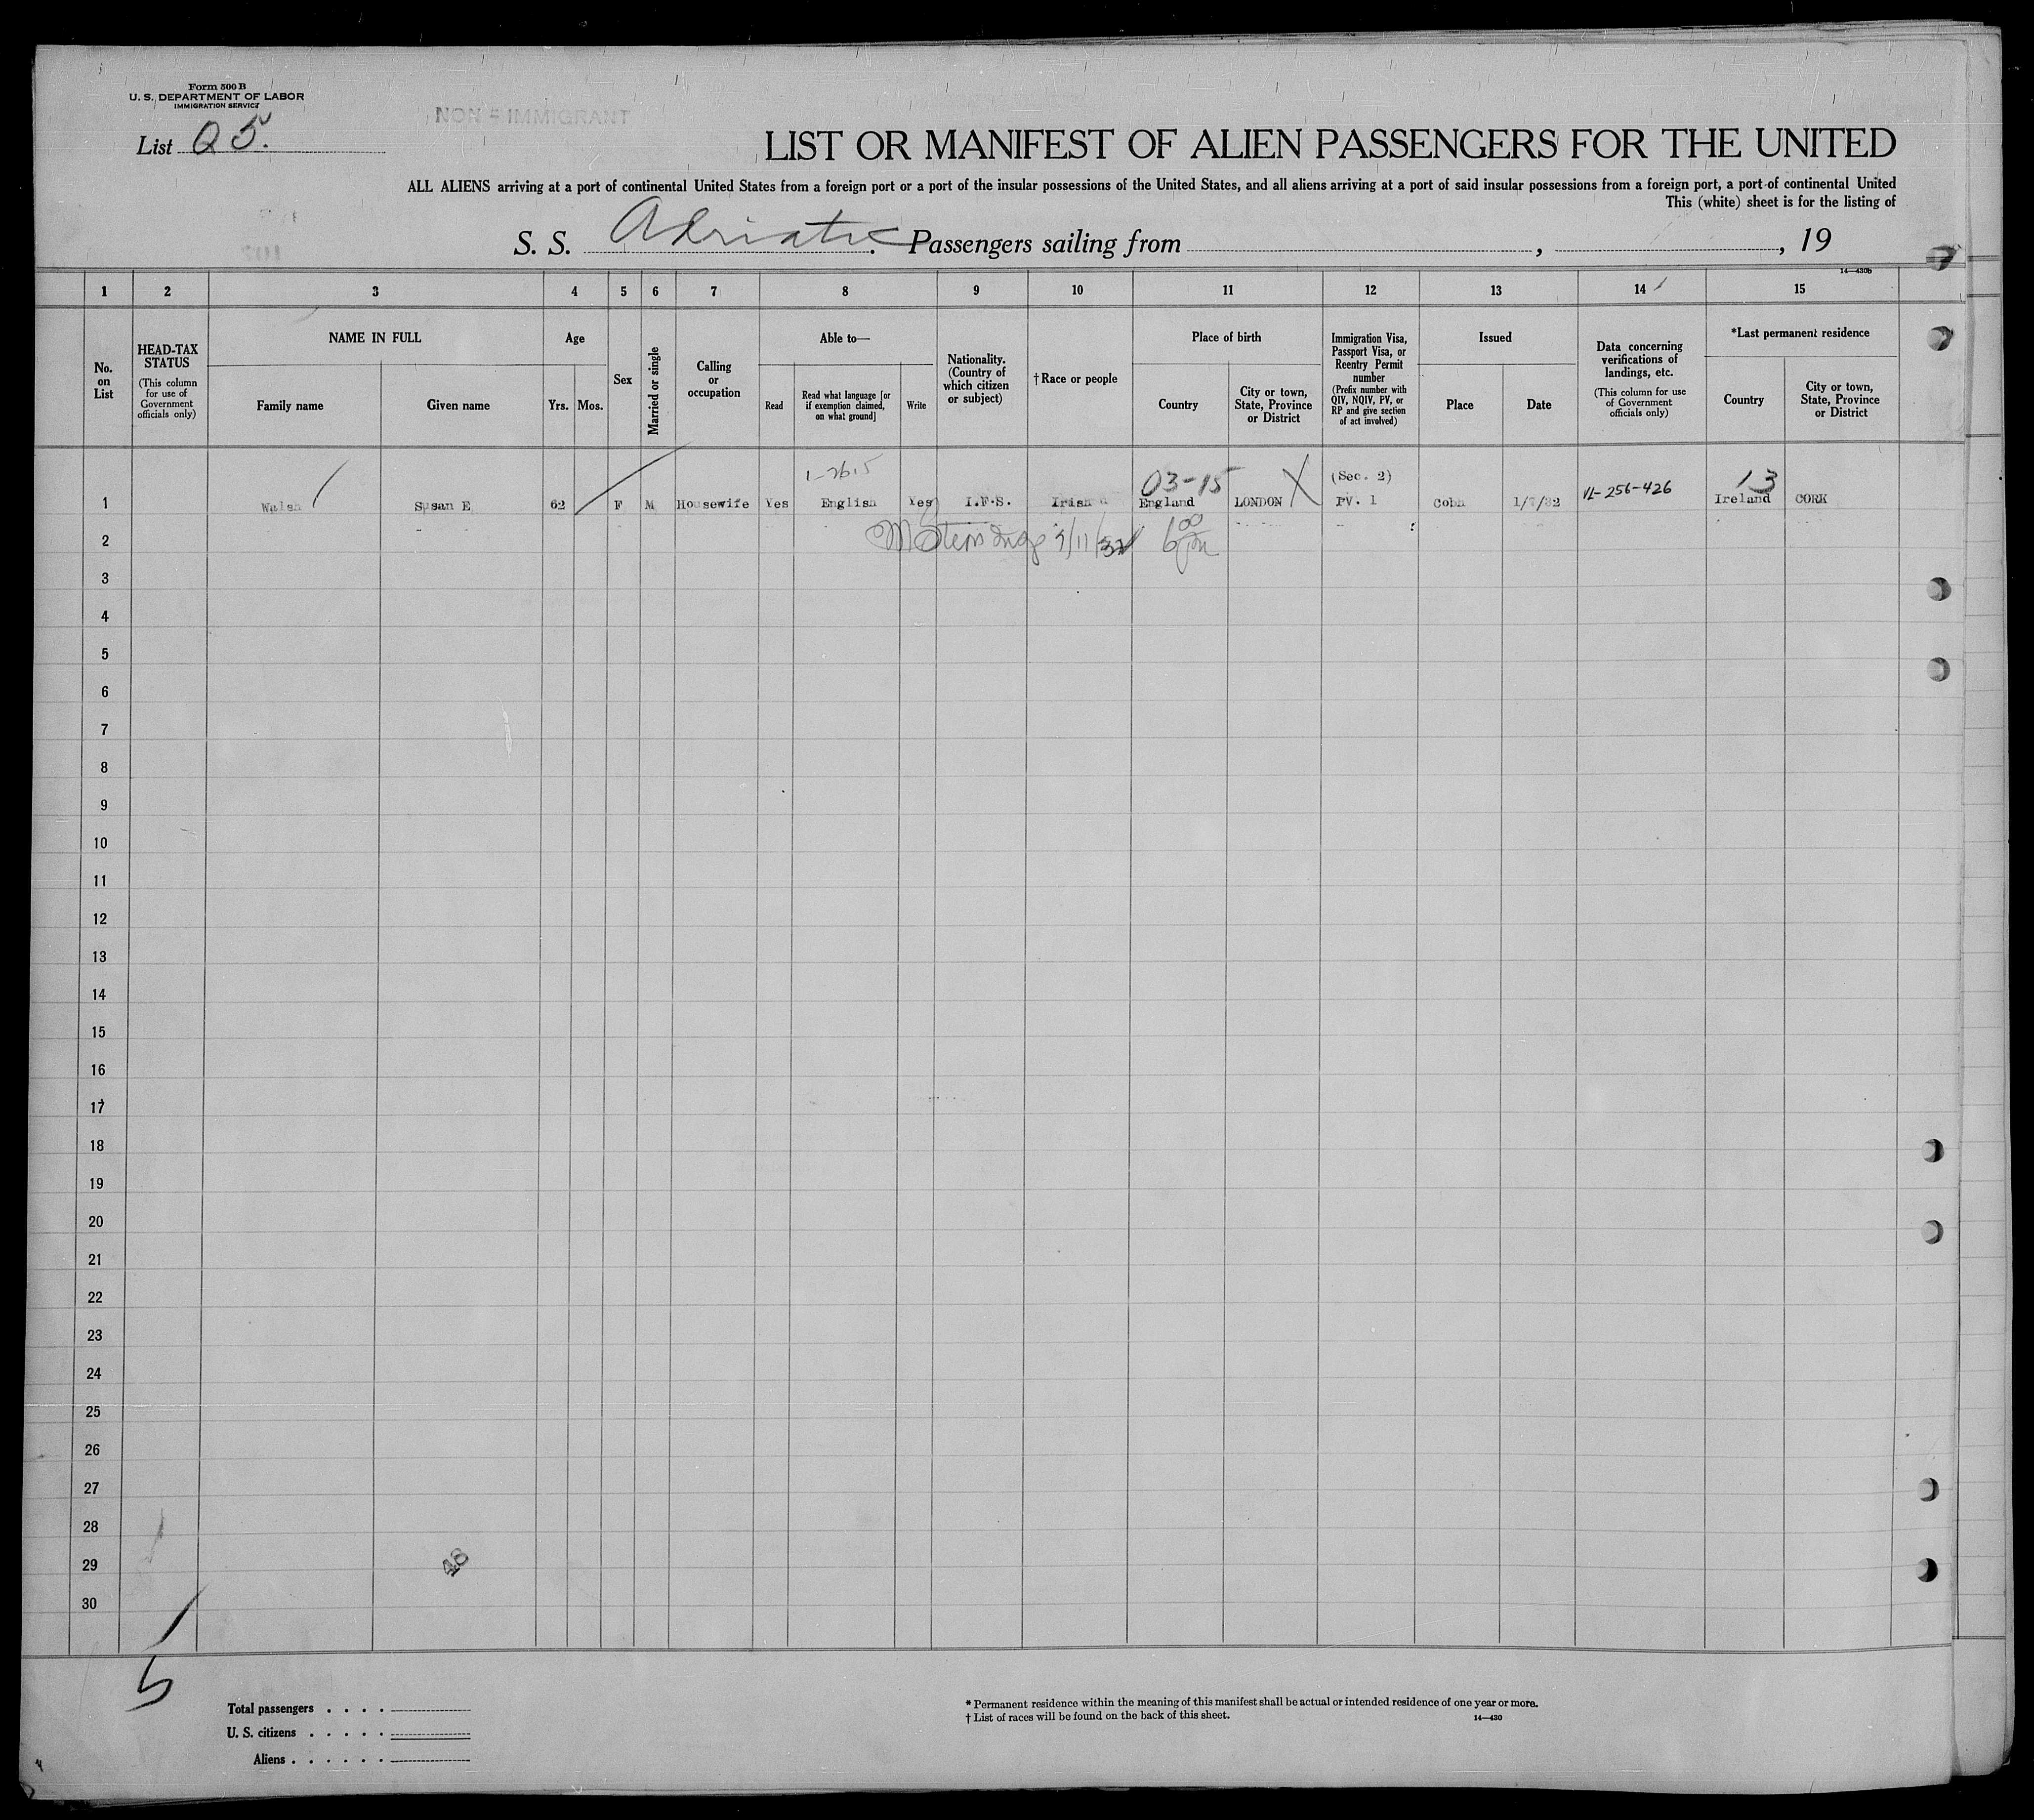 Form 500 B
U. S. DEPARTMENT OF LABOR
IMMIGRATION SERVICE
NON = IMMIGRANT
List Q 5.
LIST OR MANIFEST OF ALIEN PASSENGERS FOR THE UNITED
ALL ALIENS arriving at a port of continental United States from a foreign port or a port of the insular possessions of the United States, and all aliens arriving at a port of said insular possessions from a foreign port, a port of continental United
This (white) sheet is for the listing of
S. S. Adriatic. Passengers sailing from , , 19
14—430b
1 2 3 4 5 6 7 8 9 10 11 12 13 14 15
No. on List
HEAD-TAX STATUS (This column for use of Government officials only)
NAME IN FULL
Family name
Given name
Age
Yrs. Mos.
Sex
Married or single
Calling or occupation
Able to—
Read
Read what language [or if exemption claimed, on what ground]
Write
Nationality. (Country of which citizen or subject)
† Race or people
Place of birth
Country
City or town, State, Province or District
Immigration Visa, Passport Visa, or Reentry Permit number (Prefix number with QIV, NQIV, PV, or RP and give section of act involved)
Issued
Place
Date
Data concerning verifications of landings, etc. (This column for use of Government officials only)
*Last permanent residence
Country
City or town, State, Province or District
03-15 (Sec. 2) 13
1 Walsh Susan E 62 F M Housewife Yes English Yes I.F.S. Irish England LONDON X PV. 1 Cobh 1/7/32 VL-256-426 Ireland CORK
2
3
4
5
6
7
8
9
10
11
12
13
14
15
16
17
18
19
20
21
22
23
24
25
26
27
28
29 48
30
5
Total passengers . . . .
U. S. citizens . . . . .
Aliens . . . . . .
* Permanent residence within the meaning of this manifest shall be actual or intended residence of one year or more.
† List of races will be found on the back of this sheet.
14—430